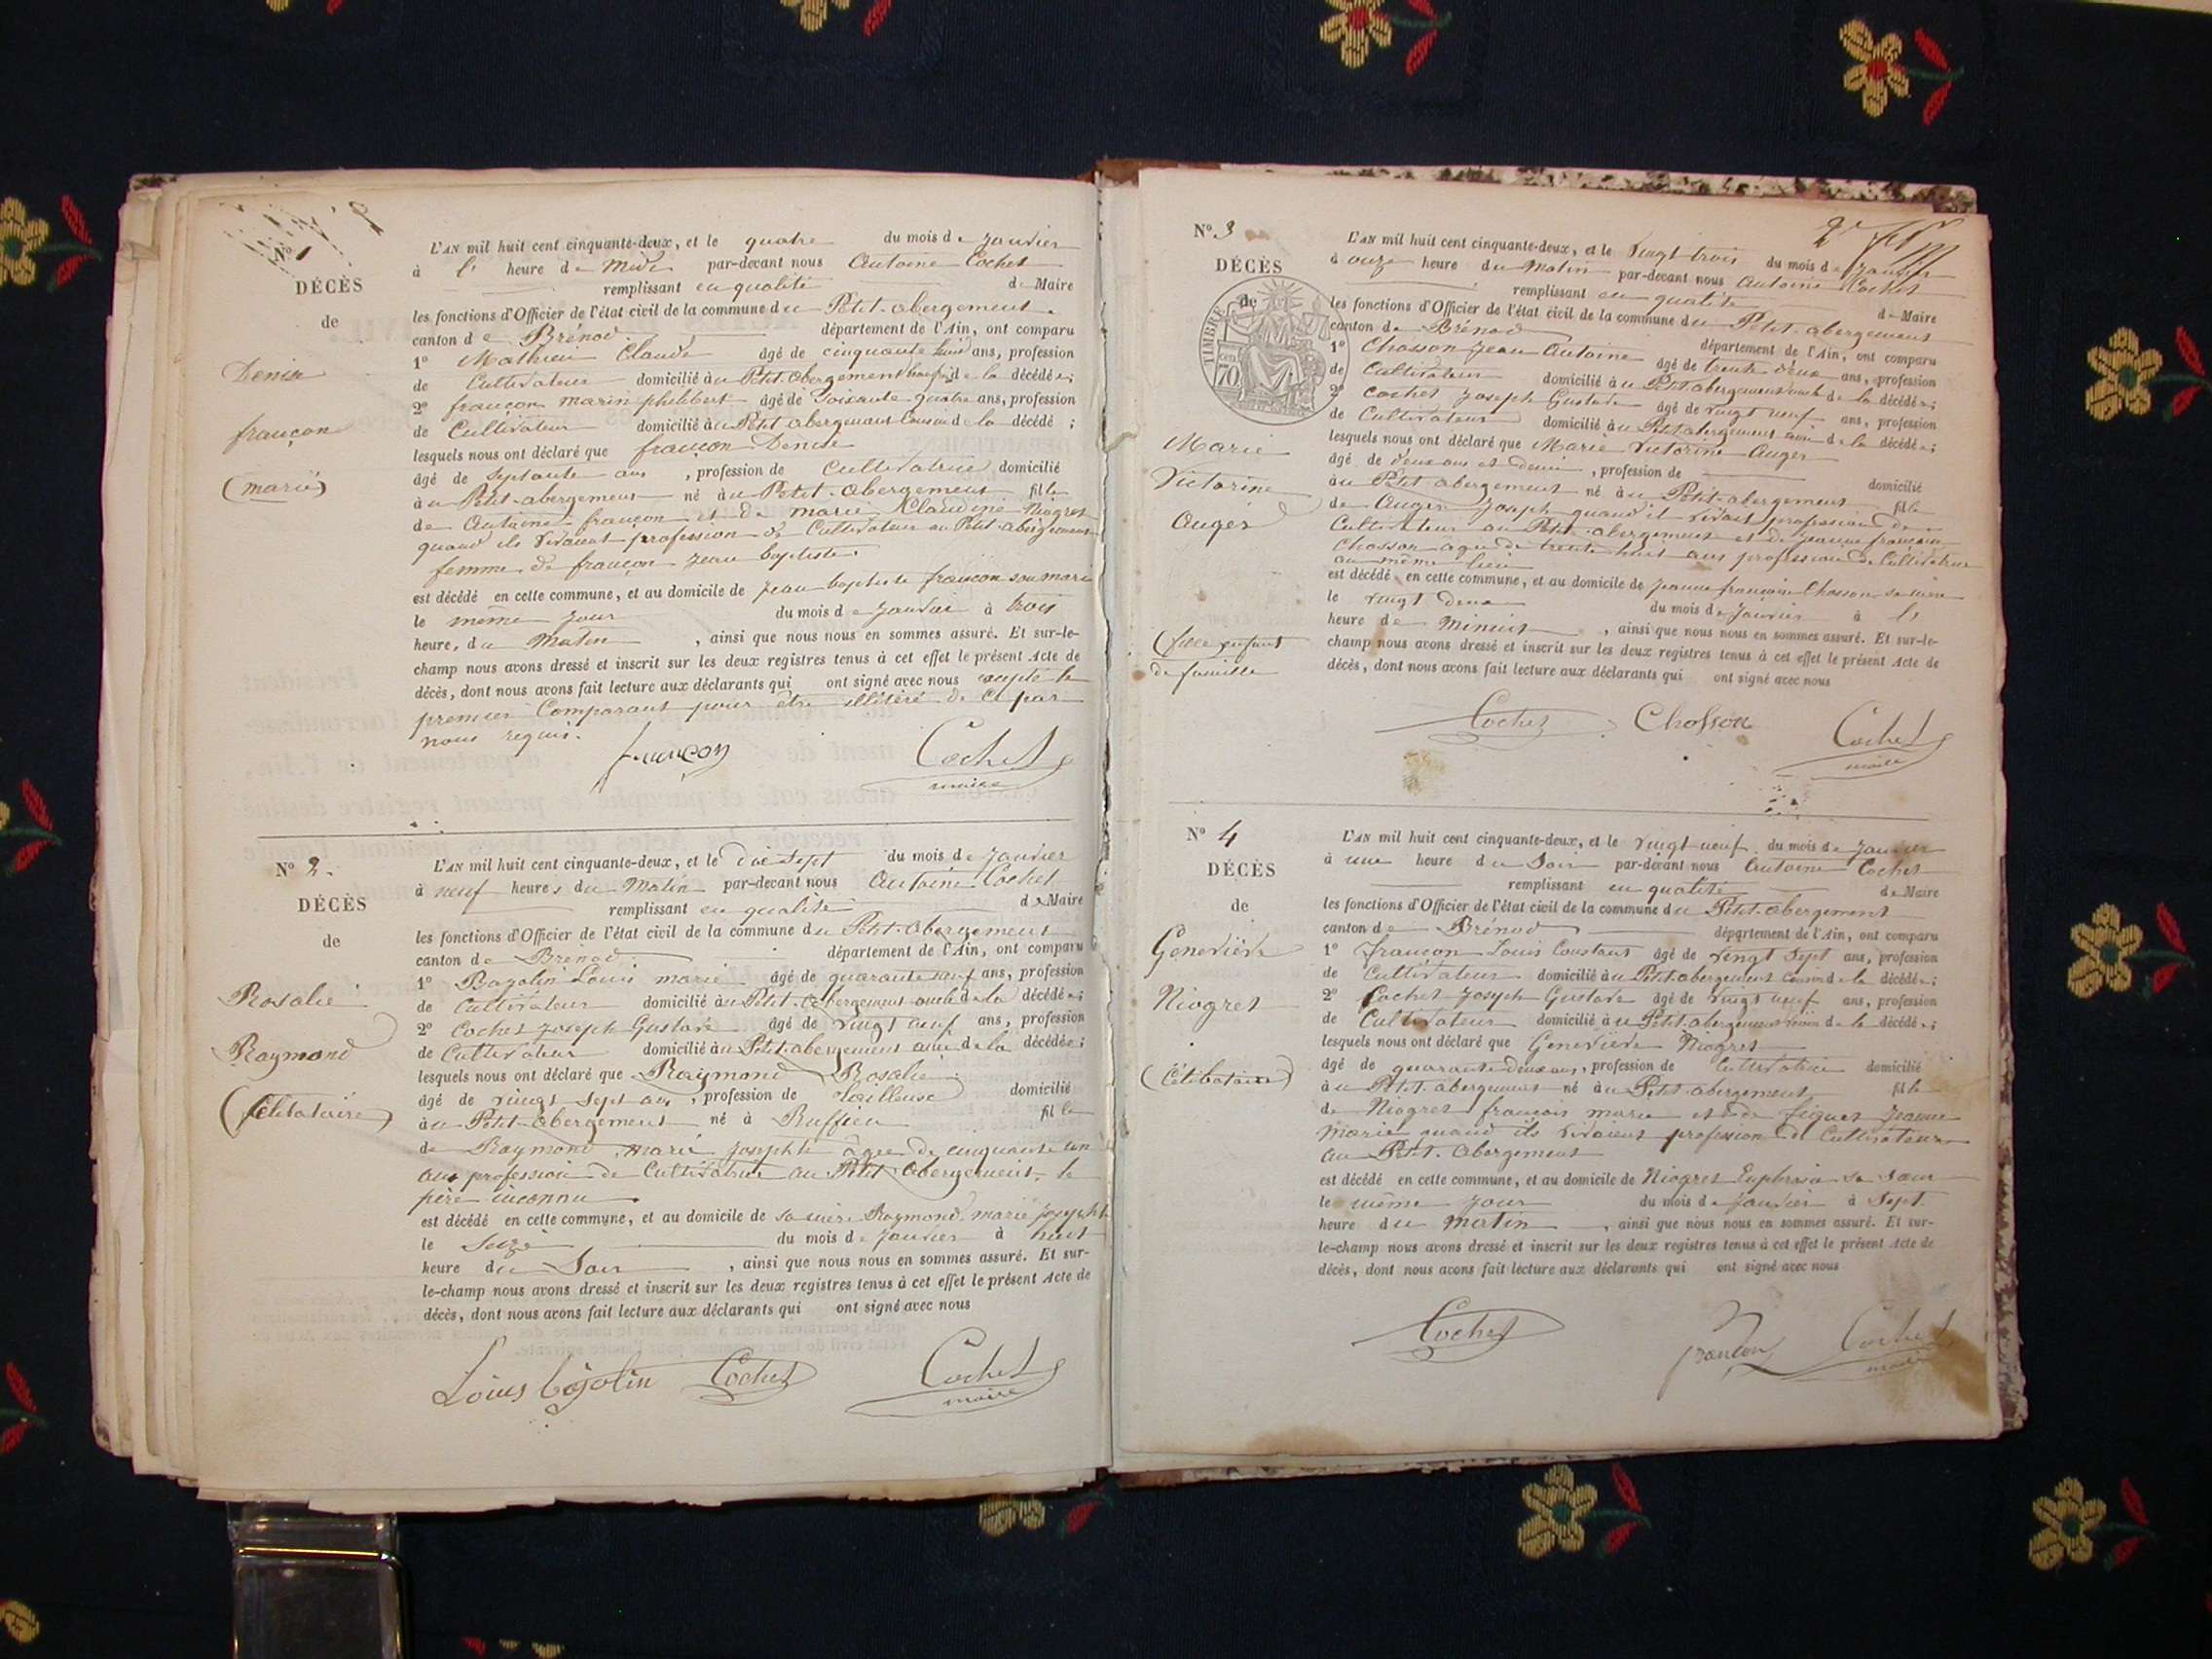 N° 1
DÉCÈS
de
Denise
françon
(mariée)
L'AN mil huit cent cinquante-deux, et le quatre du mois de Janvier
à l' heure de Midi par-devant nous Antoine Cochet
remplissant en qualité de Maire
les fonctions d'Officier de l'état civil de la commune du Petit-abergement
canton de Brénod département de l'Ain, ont comparu
1° Mathieu Claude âgé de cinquante huit ans, profession
de Cultivateur domicilié au Petit-abergement de la décédée;
2° françon marin philibert âgé de Soixante quatre ans, profession
de Cultivateur domicilié au Petit abergement Cousin de la décédé ;
lesquels nous ont déclaré que françon Denise
âgé de Septante ans , profession de Cultivatrice domicilié
au Petit-abergement né au Petit-abergement fille
de Antoine françon et de marie Claudine Niogret
quand ils vivaient profession de Cultivateur au Petit-abergement
femme de françon Jean baptiste.
est décédé en cette commune, et au domicile de Jean baptiste françon son mari
le même jour du mois de Janvier à trois
heure, du Matin , ainsi que nous nous en sommes assuré. Et sur-le-
champ nous avons dressé et inscrit sur les deux registres tenus à cet effet le présent Acte de
décès, dont nous avons fait lecture aux déclarants qui ont signé avec nous excepté le
premier Comparant pour être illétéré de ce par
nous requis.
françon Cochet
maire
N° 2.
DÉCÈS
de
Rosalie
Raymond
(Célibataire)
L'AN mil huit cent cinquante-deux, et le dix Sept du mois de Janvier
à neuf heures du Matin par-devant nous Antoine Cochet
remplissant en qualité de Maire
les fonctions d'Officier de l'état civil de la commune du Petit-abergement
canton de Brénod département de l'Ain, ont comparu
1° Bozolin Louis marie âgé de quarante neuf ans, profession
de Cultivateur domicilié au Petit-abergement oncle de la décédée;
2° Cochet Joseph Gustave âgé de vingt neuf ans, profession
de Cultivateur domicilié au Petit-abergement ami de la décédée;
lesquels nous ont déclaré que Raymond Rosalie
âgé de vingt Sept ans , profession de tailleuse domicilié
au Petit-abergement né à Ruffieu fille
de Raymond marie josephte âgée de cinquante un
ans profession de Cultivatrice au Petit Abergement, le
père inconnu
est décédé en cette commune, et au domicile de sa mère Raymond marie josephte
le Seize du mois de Janvier à huit
heure du Soir , ainsi que nous nous en sommes assuré. Et sur-
le-champ nous avons dressé et inscrit sur les deux registres tenus à cet effet le présent Acte de
décès, dont nous avons fait lecture aux déclarants qui ont signé avec nous
Louis bozolin Cochet Cochet
maire
N° 3
DÉCÈS
de
TIMBRE
70
Marie
Victorine
Auger
(fille enfant
de famille
L'AN mil huit cent cinquante-deux, et le Vingt trois du mois de Janvier
à onze heure du Matin par-devant nous Antoine Cochet
remplissant en qualité de Maire
les fonctions d'Officier de l'état civil de la commune du Petit-abergement
canton de Brénod département de l'Ain, ont comparu
1° Chosson Jean Antoine âgé de trente deux ans, profession
de Cultivateur domicilié au Petit abergement oncle de la décédée;
2° Cochet Joseph Gustave âgé de vingt neuf ans, profession
de Cultivateur domicilié au Petit abergement ami de la décédée;
lesquels nous ont déclaré que Marie Victorine Auger
âgé de deux ans et demi , profession de domicilié
au Petit abergement né au Petit-abergement fille
de Auger Joseph quand il vivait profession de
Cultivateur au Petit-abergement et de Jeanne françoise
Chosson âgée de trente huit ans profession de Cultivatrice
au même lieu
est décédé en cette commune, et au domicile de Jeanne françoise Chosson sa mère
le vingt deux du mois de Janvier à l'
heure de Minuit , ainsi que nous nous en sommes assuré. Et sur-le-
champ nous avons dressé et inscrit sur les deux registres tenus à cet effet le présent Acte de
décès, dont nous avons fait lecture aux déclarants qui ont signé avec nous
Cochet Chosson Cochet
maire
N° 4
DÉCÈS
de
Geneviève
Niogret
(Célibataire)
L'AN mil huit cent cinquante-deux, et le vingt neuf du mois de Janvier
à une heure du Soir par-devant nous Antoine Cochet
remplissant en qualité de Maire
les fonctions d'Officier de l'état civil de la commune du Petit-abergement
canton de Brénod département de l'Ain, ont comparu
1° françon Louis Constant âgé de vingt Sept ans, profession
de Cultivateur domicilié au Petit-abergement Cousin de la décédée;
2° Cochet Joseph Gustave âgé de vingt neuf ans, profession
de Cultivateur domicilié au Petit-abergement de la décédée;
lesquels nous ont déclaré que Geneviève Niogret
âgé de quarante deux ans, profession de Cultivatrice domicilié
au Petit abergement né au Petit-abergement fille
de Niogret françois marie et de Jeanne
Marie quand ils vivaient profession de Cultivateurs
au Petit-Abergement
est décédé en cette commune, et au domicile de Niogret Euphrasie sa Sœur
le même jour du mois de Janvier à Sept
heure du Matin , ainsi que nous nous en sommes assuré. Et sur-
le-champ nous avons dressé et inscrit sur les deux registres tenus à cet effet le présent Acte de
décès, dont nous avons fait lecture aux déclarants qui ont signé avec nous
Cochet françon Cochet
maire